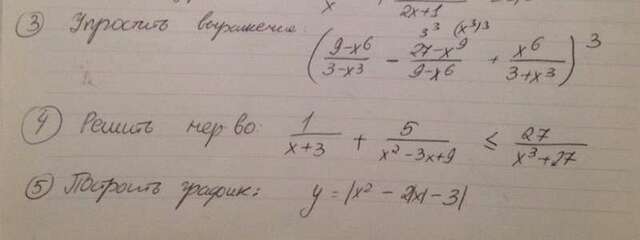 x 2x+1
③ Упростить выражение: ((9-x⁶)/(3-x³) - (27-x⁹)/(9-x⁶) + x⁶/(3+x³))³
3³ (x³)3
④ Решить нер-во: 1/(x+3) + 5/(x²-3x+9) ≤ 27/(x³+27)
⑤ Построить график: y = |x² - 2|x| - 3|